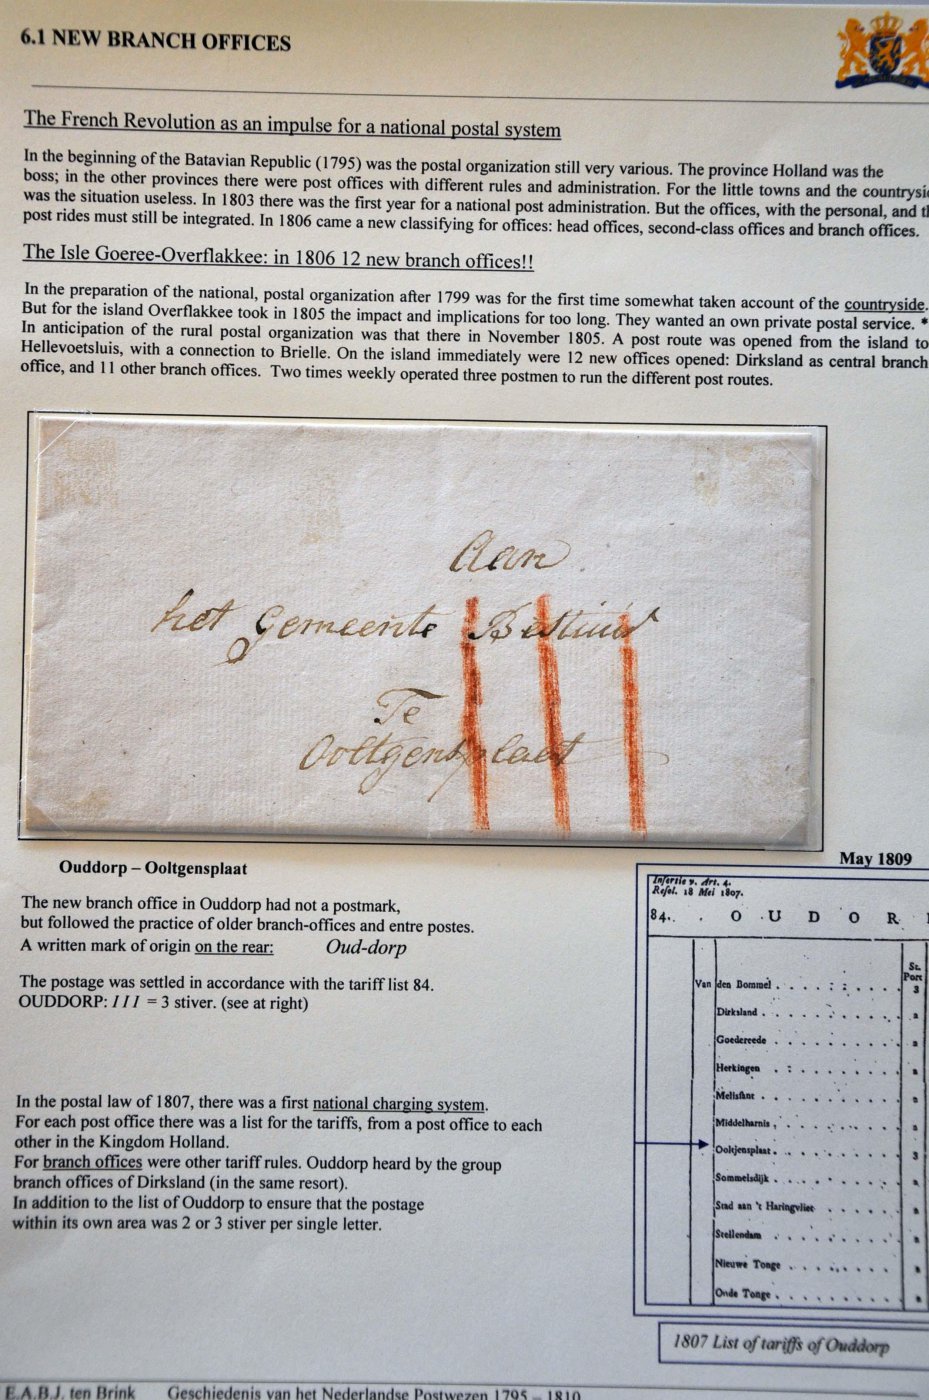 6.1 NEW BRANCH OFFICES
The French Revolution as an impulse for a national postal system
In the beginning of the Batavian Republic (1795) was the postal organization still very various. The province Holland was the
boss; in the other provinces there were post offices with different rules and administration. For the little towns and the countrysi
was the situation useless. In 1803 there was the first year for a national post administration. But the offices, with the personal, and t
post rides must still be integrated. In 1806 came a new classifying for offices: head offices, second-class offices and branch offices.
The Isle Goeree-Overflakkee: in 1806 12 new branch offices!!
In the preparation of the national, postal organization after 1799 was for the first time somewhat taken account of the countryside.
But for the island Overflakkee took in 1805 the impact and implications for too long. They wanted an own private postal service. *
In anticipation of the rural postal organization was that there in November 1805. A post route was opened from the island to
Hellevoetsluis, with a connection to Brielle. On the island immediately were 12 new offices opened: Dirksland as central branch
office, and 11 other branch offices. Two times weekly operated three postmen to run the different post routes.
Aan
het Gemeente Bestuur
Te
Ooltgensplaat
III
Ouddorp – Ooltgensplaat
May 1809
The new branch office in Ouddorp had not a postmark,
but followed the practice of older branch-offices and entre postes.
A written mark of origin on the rear: Oud-dorp
The postage was settled in accordance with the tariff list 84.
OUDDORP: III = 3 stiver. (see at right)
In the postal law of 1807, there was a first national charging system.
For each post office there was a list for the tariffs, from a post office to each
other in the Kingdom Holland.
For branch offices were other tariff rules. Ouddorp heard by the group
branch offices of Dirksland (in the same resort).
In addition to the list of Ouddorp to ensure that the postage
within its own area was 2 or 3 stiver per single letter.
Insertie v. Art. 4.
Resol. 18 Mei 1807.
84. . O U D O R
St.
Port
Van den Bommel . . . . . . . 3
Dirksland . . . . . . . . 2
Goedereede . . . . . . . 2
Herkingen . . . . . . . 2
Melissant . . . . . . . . 2
Middelharnis . . . . . . . 2
Ooltjensplaat . . . . . . . 3
Sommelsdijk . . . . . . . 2
Stad aan 't Haringvliet . . . . . 2
Stellendam . . . . . . . 2
Nieuwe Tonge . . . . . . 2
Oude Tonge . . . . . . . 2
1807 List of tariffs of Ouddorp
E.A.B.J. ten Brink Geschiedenis van het Nederlandse Postwezen 1795 – 1810